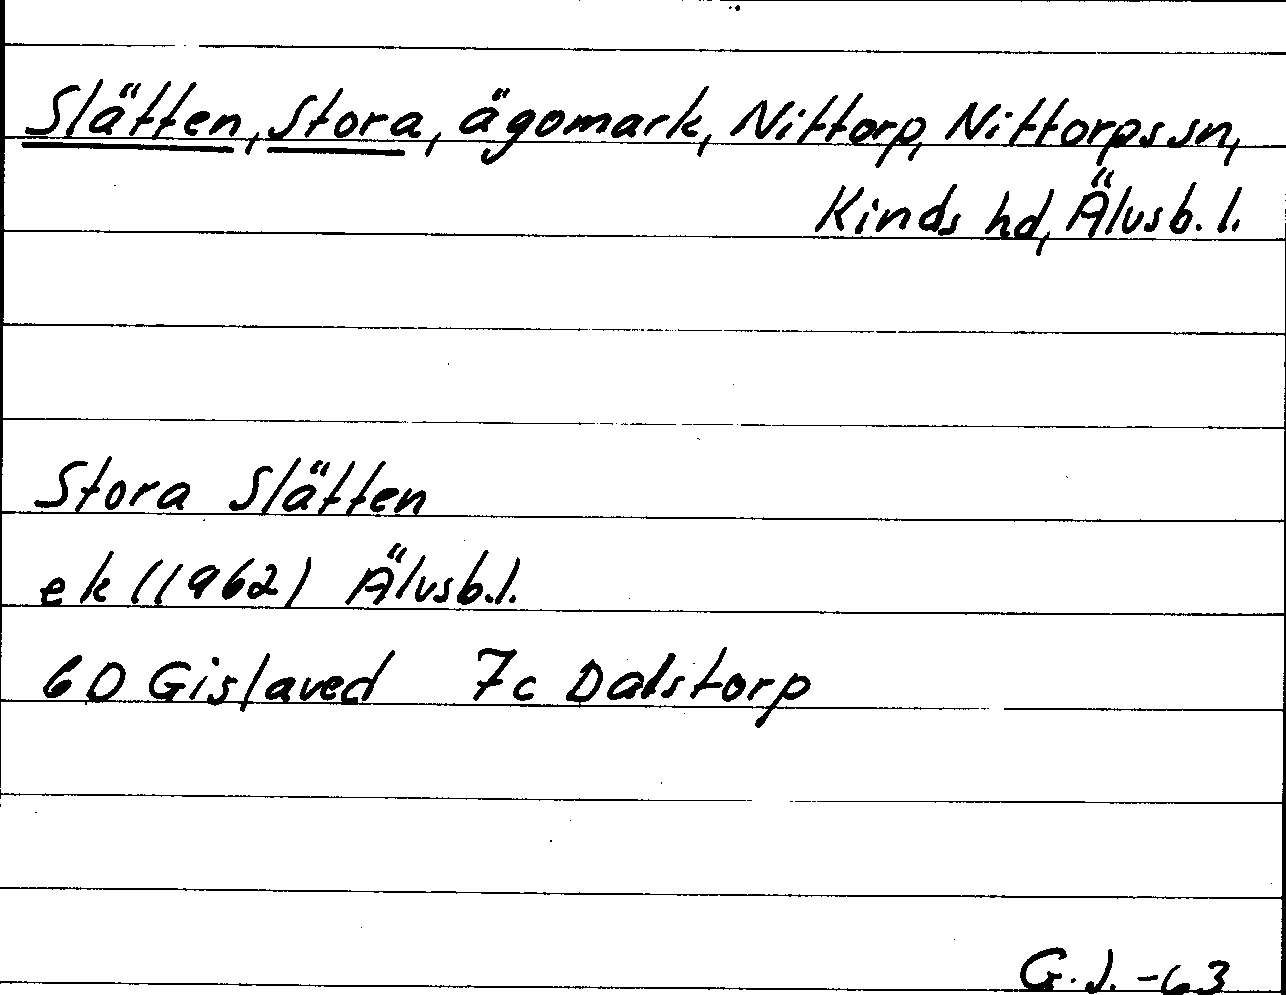 Slätten, Stora, ägomark, Nittorp, Nittorps sn,
Kinds hd, Älvsb. l.
Stora Slätten
ek (1962) Älvsb. l.
6D Gislaved 7c Dalstorp
G. J. -63